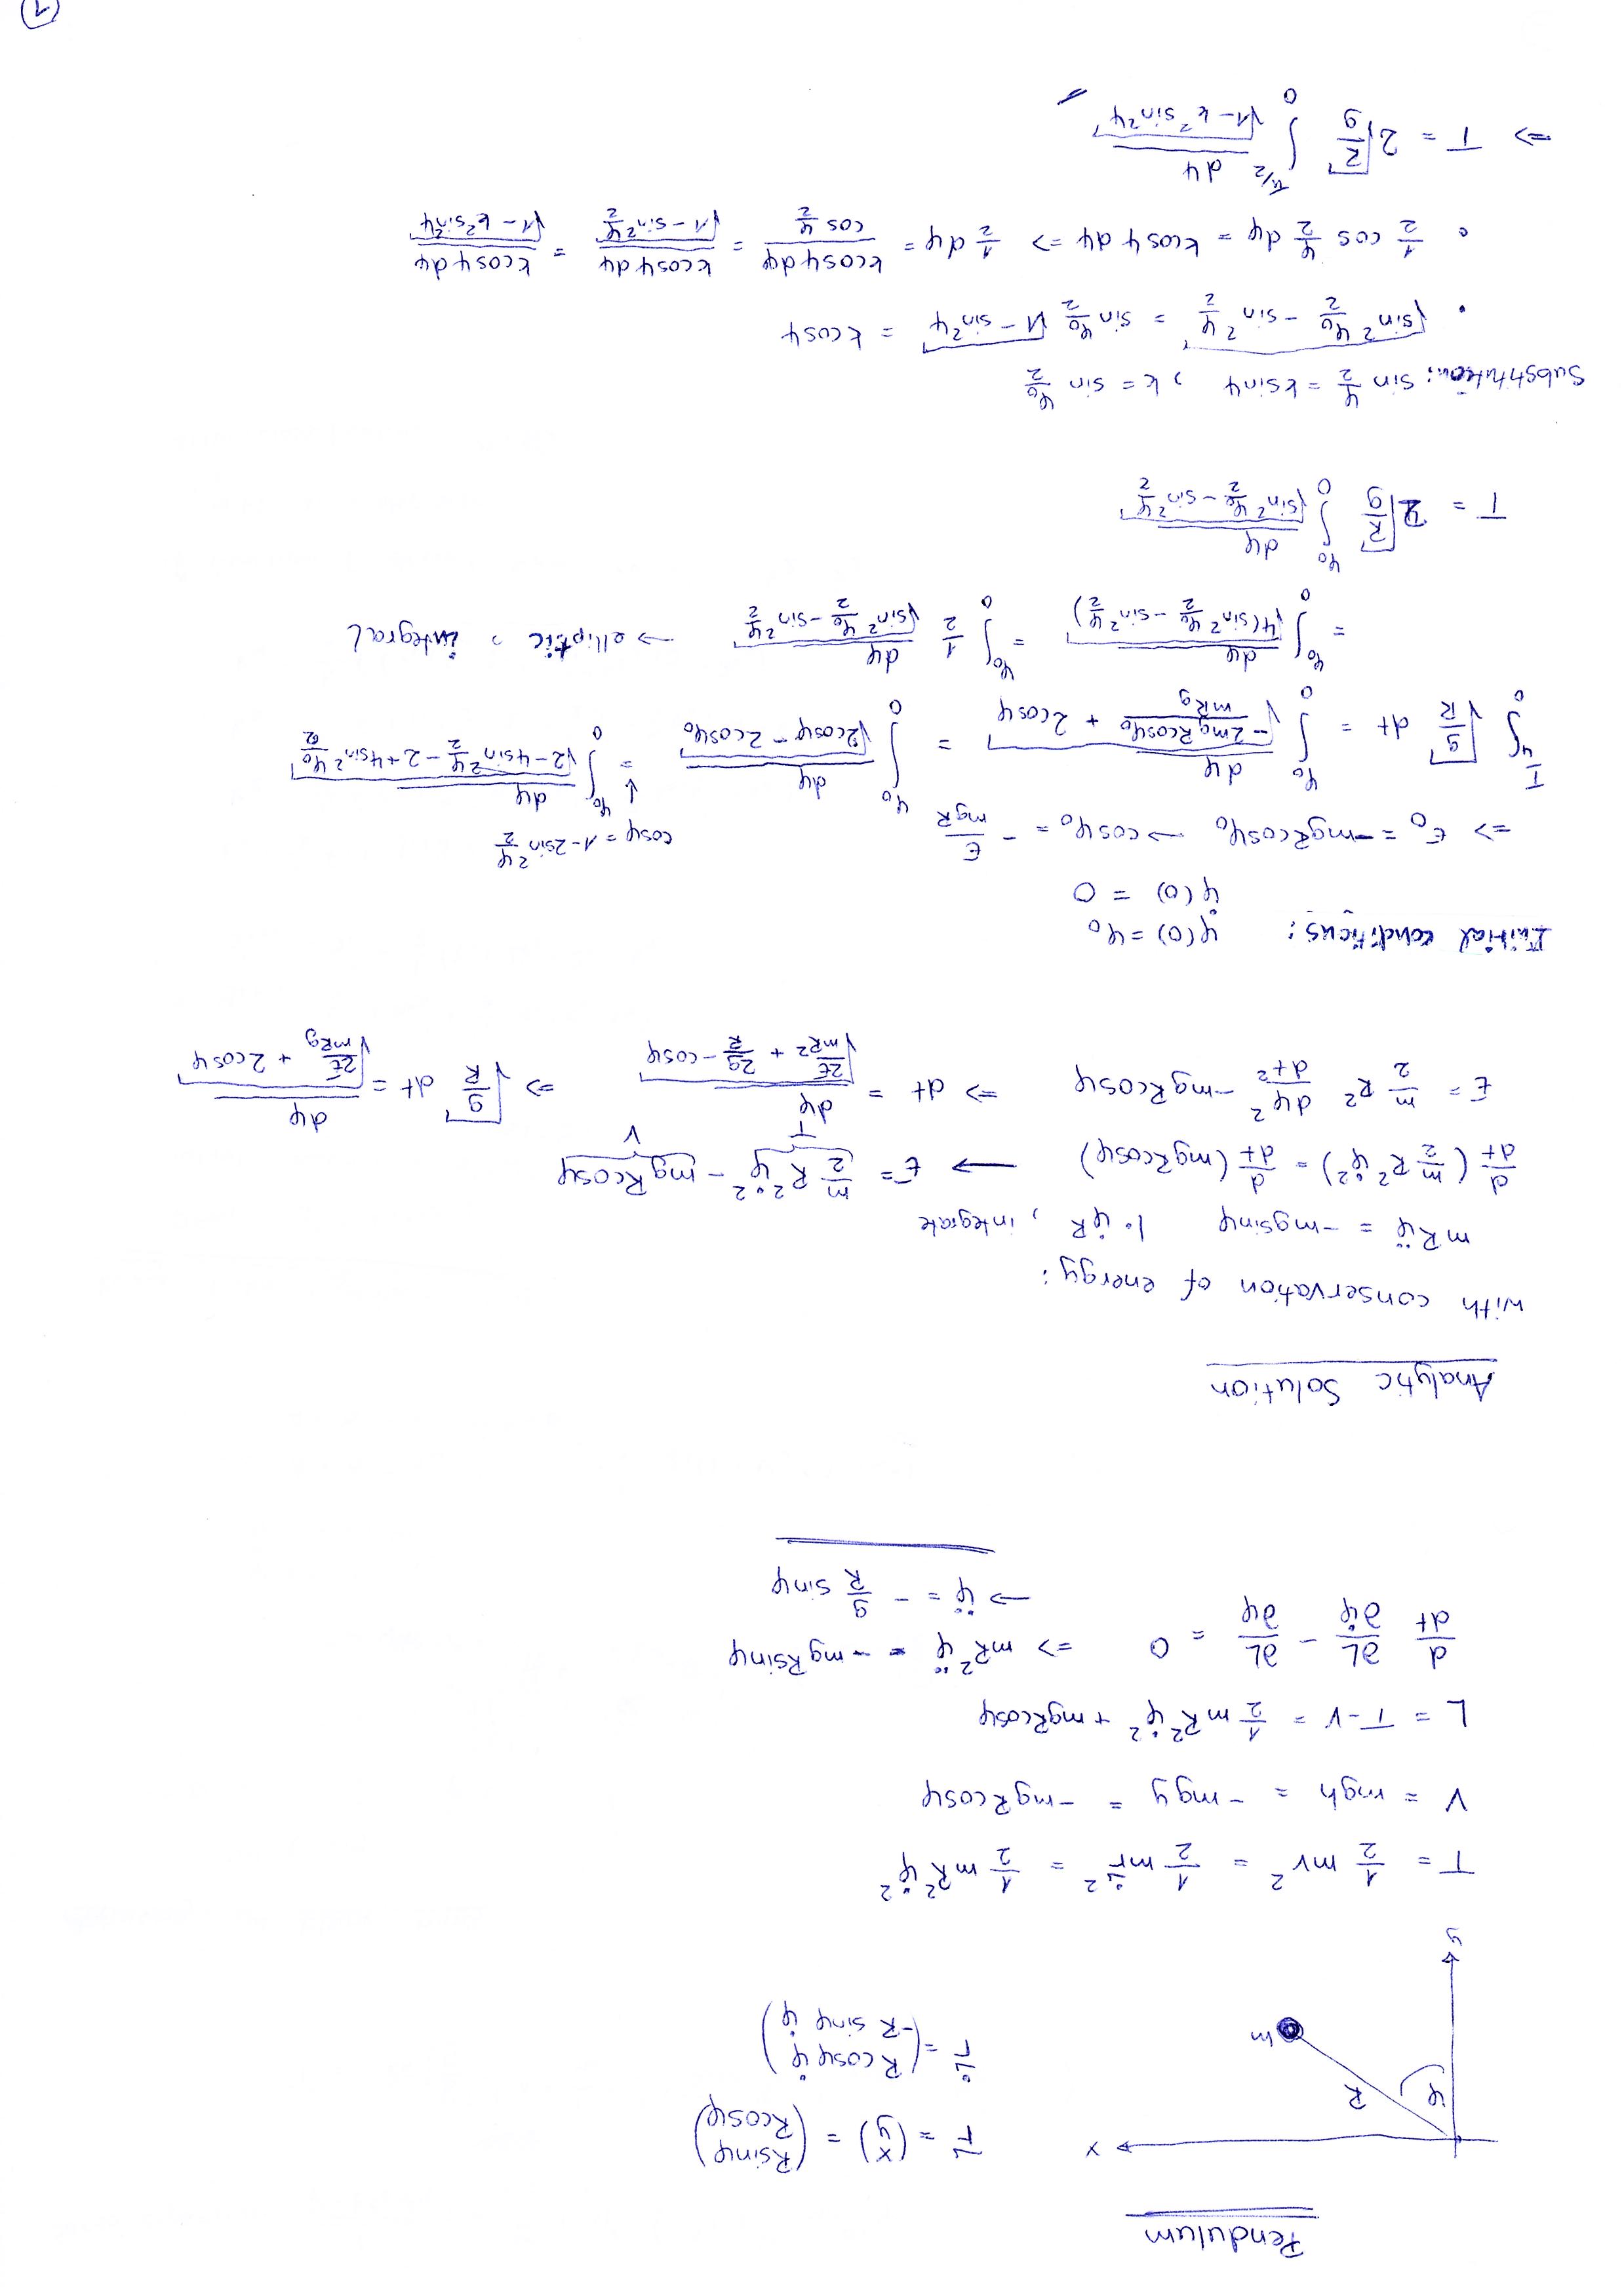 Pendulum
x
y
φ
R
m
r⃗ = (x y) = (Rsinφ Rcosφ)
r⃗̇ = (Rcosφ φ̇ -R sinφ φ̇)
T = 1/2 mv² = 1/2 m r⃗̇² = 1/2 mR²φ̇²
V = mgh = -mgy = -mgRcosφ
L = T-V = 1/2 mR²φ̇² + mgRcosφ
d/dt ∂L/∂φ̇ - ∂L/∂φ = 0 ⇒ mR²φ̈ = -mgRsinφ
→ φ̈ = - g/R sinφ
Analytic Solution
with conservation of energy:
mRφ̈ = -mgsinφ |·φ̇R, integrate
d/dt (m/2 R²φ̇²) = d/dt (mgRcosφ) → E = m/2 R²φ̇² - mgRcosφ
T V
E = m/2 R² dφ²/dt² - mgRcosφ ⇒ dt = dφ/√(2E/mR² + 2g/R - cosφ) ⇒ √(g/R) dt = dφ/√(2E/mRg + 2cosφ)
Initial conditions: φ(0) = φ₀
φ̇(0) = 0
⇒ E₀ = -mgRcosφ₀ → cosφ₀ = - E/mgR
cosφ = 1-2sin² φ/2
∫₀^(T/4) √(g/R) dt = ∫₀^φ₀ dφ/√(-2mgRcosφ₀/mRg + 2cosφ) = ∫₀^φ₀ dφ/√(2cosφ - 2cosφ₀) = ∫₀^φ₀ dφ/√(2-4sin² φ/2 - 2 + 4sin² φ₀/2)
= ∫₀^φ₀ dφ/√(4(sin² φ₀/2 - sin² φ/2)) = ∫₀^φ₀ 1/2 dφ/√(sin² φ₀/2 - sin² φ/2) → elliptic integral
T = 2√(R/g) ∫₀^φ₀ dφ/√(sin² φ₀/2 - sin² φ/2)
Substitution: sin φ/2 = ksinψ , k = sin φ₀/2
• √(sin² φ₀/2 - sin² φ/2) = sin φ₀/2 √(1-sin²ψ) = kcosψ
• 1/2 cos φ/2 dφ = kcosψ dψ ⇒ 1/2 dφ = kcosψdψ/cos φ/2 = kcosψdψ/√(1-sin² φ/2) = kcosψdψ/√(1-k²sin²ψ)
⇒ T = 2√(R/g) ∫₀^(π/2) dψ/√(1-k²sin²ψ)
1